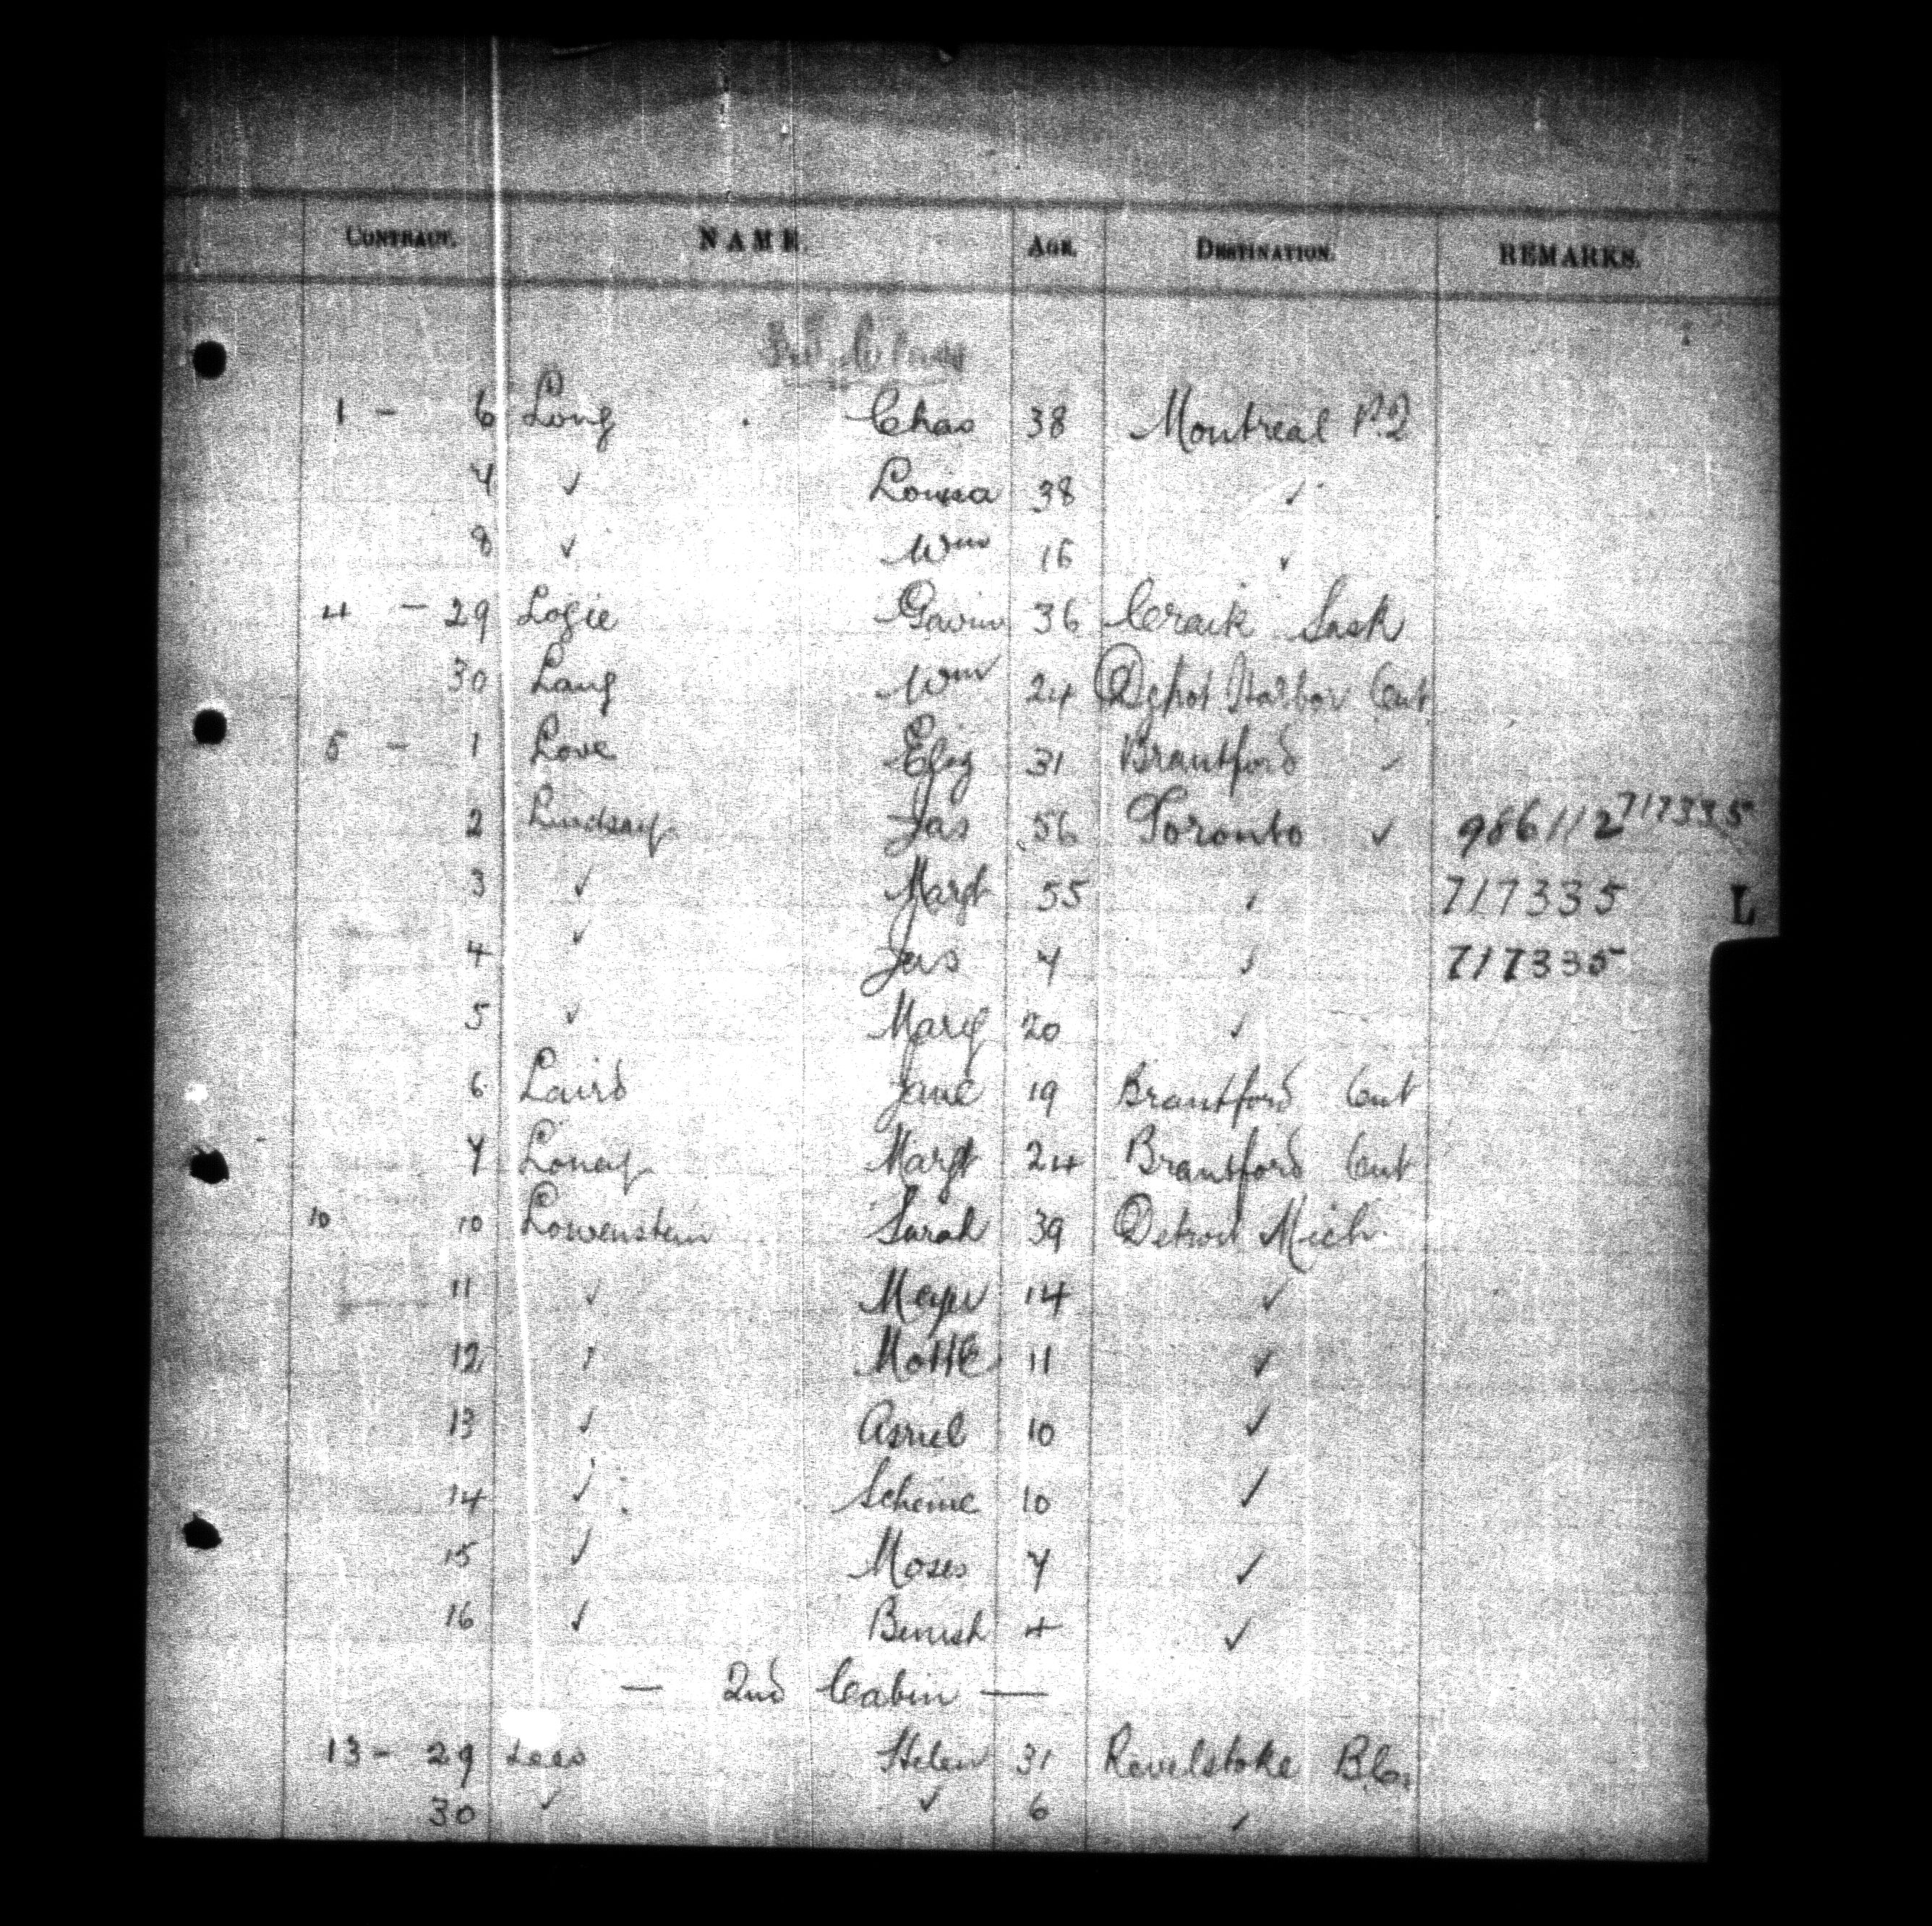 CONTRACT. NAME. AGE. DESTINATION. REMARKS.
3rd Class
1 - 6 Long Chas 38 Montreal P.Q
7 ✓ Louisa 38 ✓
8 ✓ Wm 16 ✓
4 - 29 Logie Gavin 36 Craik Sask
30 Lang Wm 24 Depot Harbor Ont
5 - 1 Love Eliz 31 Brantford ✓
2 Lindsay Jas 56 Toronto ✓ 986112 717335
3 ✓ Margt 55 ✓ 717335 L
4 ✓ Jas 7 ✓ 717335
5 ✓ Mary 20 ✓
6 Laird Jane 19 Brantford Ont
7 Margt 24 Brantford Ont
10 10 Lowenstein Sarah 39 Detroit Mich.
11 ✓ Meyer 14 ✓
12 ✓ Motte 11 ✓
13 ✓ Asriel 10 ✓
14 ✓ Scheine 10 ✓
15 ✓ Moses 7 ✓
16 ✓ Benish 4 ✓
— 2nd Cabin —
13 - 29 Lees Helen 31 Revelstoke B.C.
30 ✓ ✓ 6 ✓